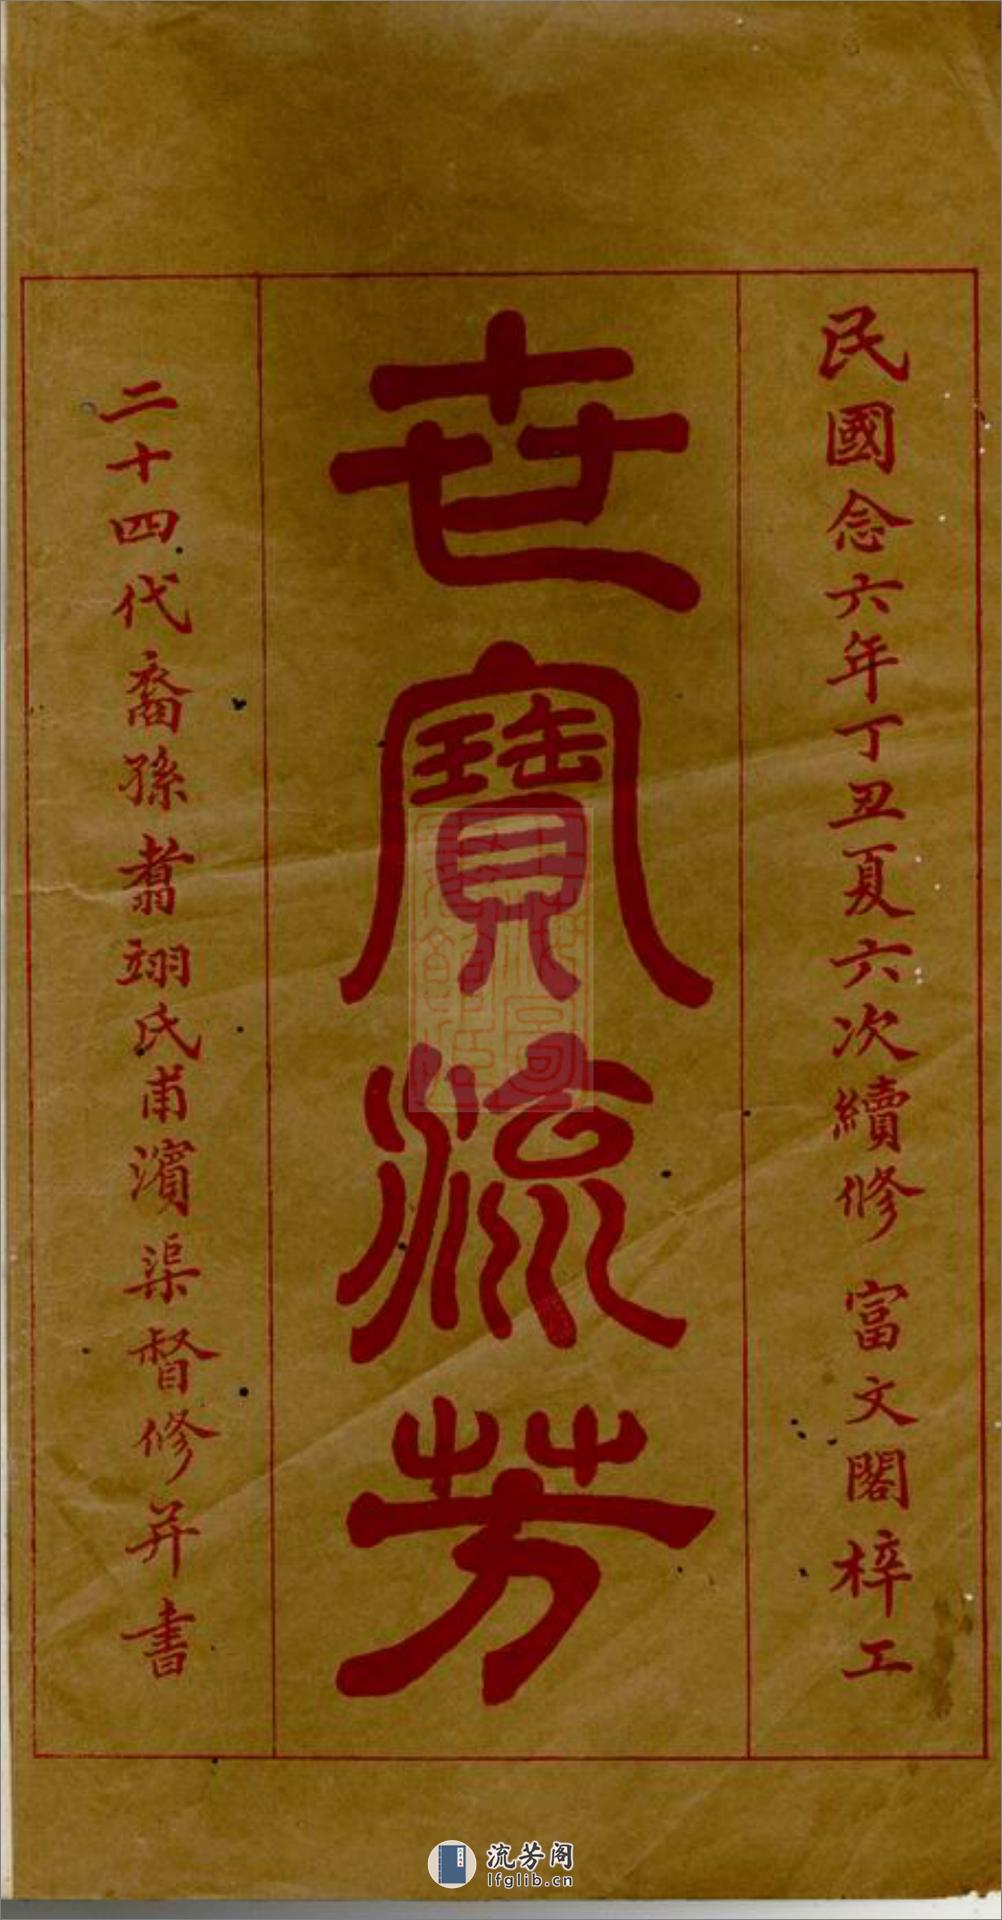 民國念六年丁丑夏六次續修 富文閣梓工
世寶流芳
二十四代裔孫翥翊氏甫濱渠督修并書
流芳阁
lfglib.cn